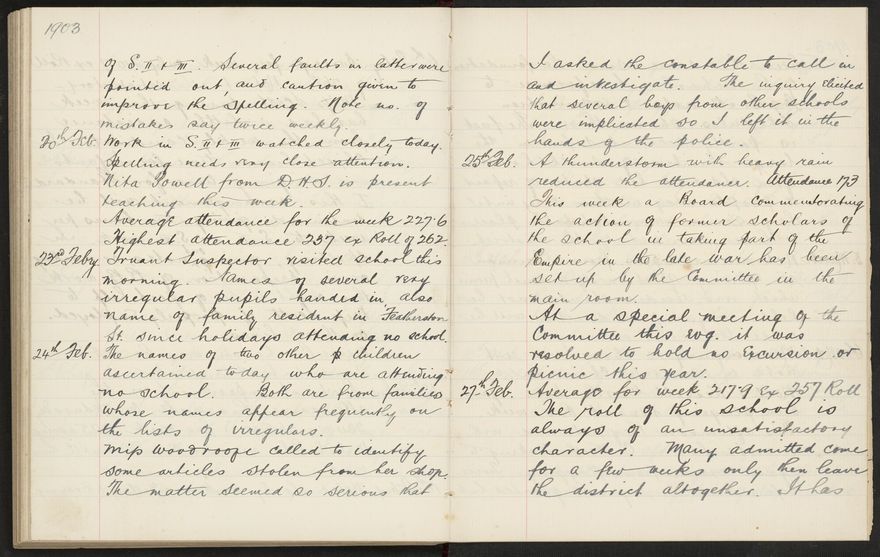 1903
of S. II & III. Several faults in latter were
pointed out, and caution given to
improve the spelling. Note no. of
mistakes say twice weekly.
20th Feb. Work in S. II & III watched closely today.
Spelling needs very close attention.
Nita Powell from D.H.S. is present
teaching this week.
Average attendance for the week 227.6
Highest attendance 257 ex Roll of 262.
23rd Feby. Truant Inspector visited school this
morning. Names of several very
irregular pupils handed in, also
name of family resident in Featherston
St. since holidays attending no school.
24th Feb. The names of two other children
ascertained today who are attending
no school. Both are from families
whose names appear frequently on
the lists of irregulars.
Miss Woodroofe called to identify
some articles stolen from her shop.
The matter seemed so serious that
I asked the constable to call in
and investigate. The inquiry elicited
that several boys from other schools
were implicated so I left it in the
hands of the police.
25th Feb. A thunderstorm with heavy rain
reduced the attendance. Attendance 173
This week a Board commemorating
the action of former scholars of
the school in taking part of the
Empire in the late war has been
set up by the Committee in the
main room.
At a special meeting of the
Committee this evg. it was
resolved to hold no Excursion or
picnic this year.
27th Feb. Average for week 217.9 Ex 257 Roll
The roll of this school is
always of an unsatisfactory
character. Many admitted come
for a few weeks only then leave
the district altogether. It has